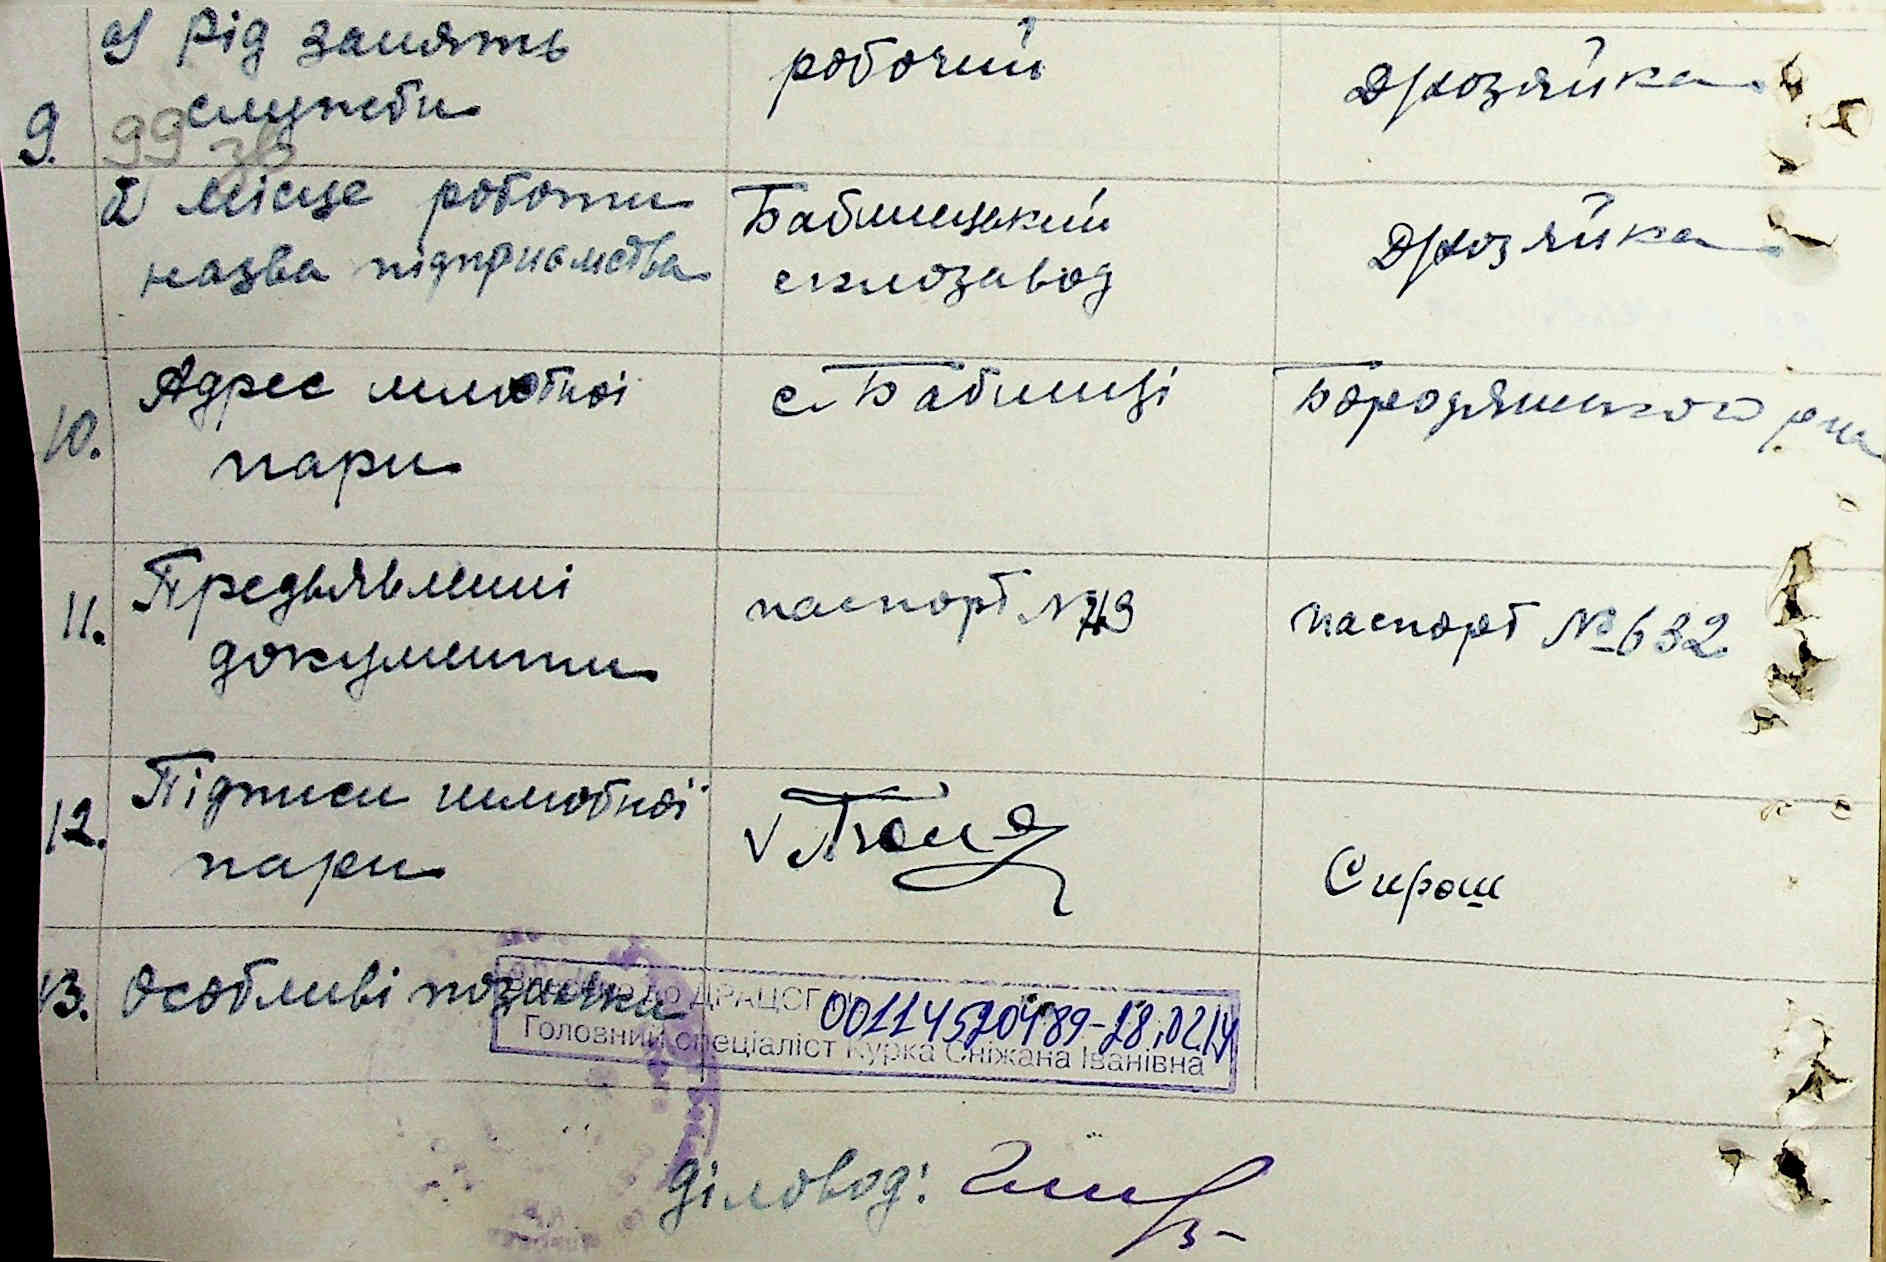 а) Рід занять робочий Д/хозяйка
служби
9. 99 зв
б) Місце роботи Бабинецький Д/хозяйка
назва підприємства склозавод
Адрес шлюбної с. Бабинці Бородянського р-на
10. пари
Предьявлені паспорт № паспорт № 632
11. документи
Підписи шлюбної
12. пари Сирош
13. Особливі позначки
до ДРАЦСГ 00114520489-28.02.14
Головний спеціаліст Курка Сніжана Іванівна
Діловод: